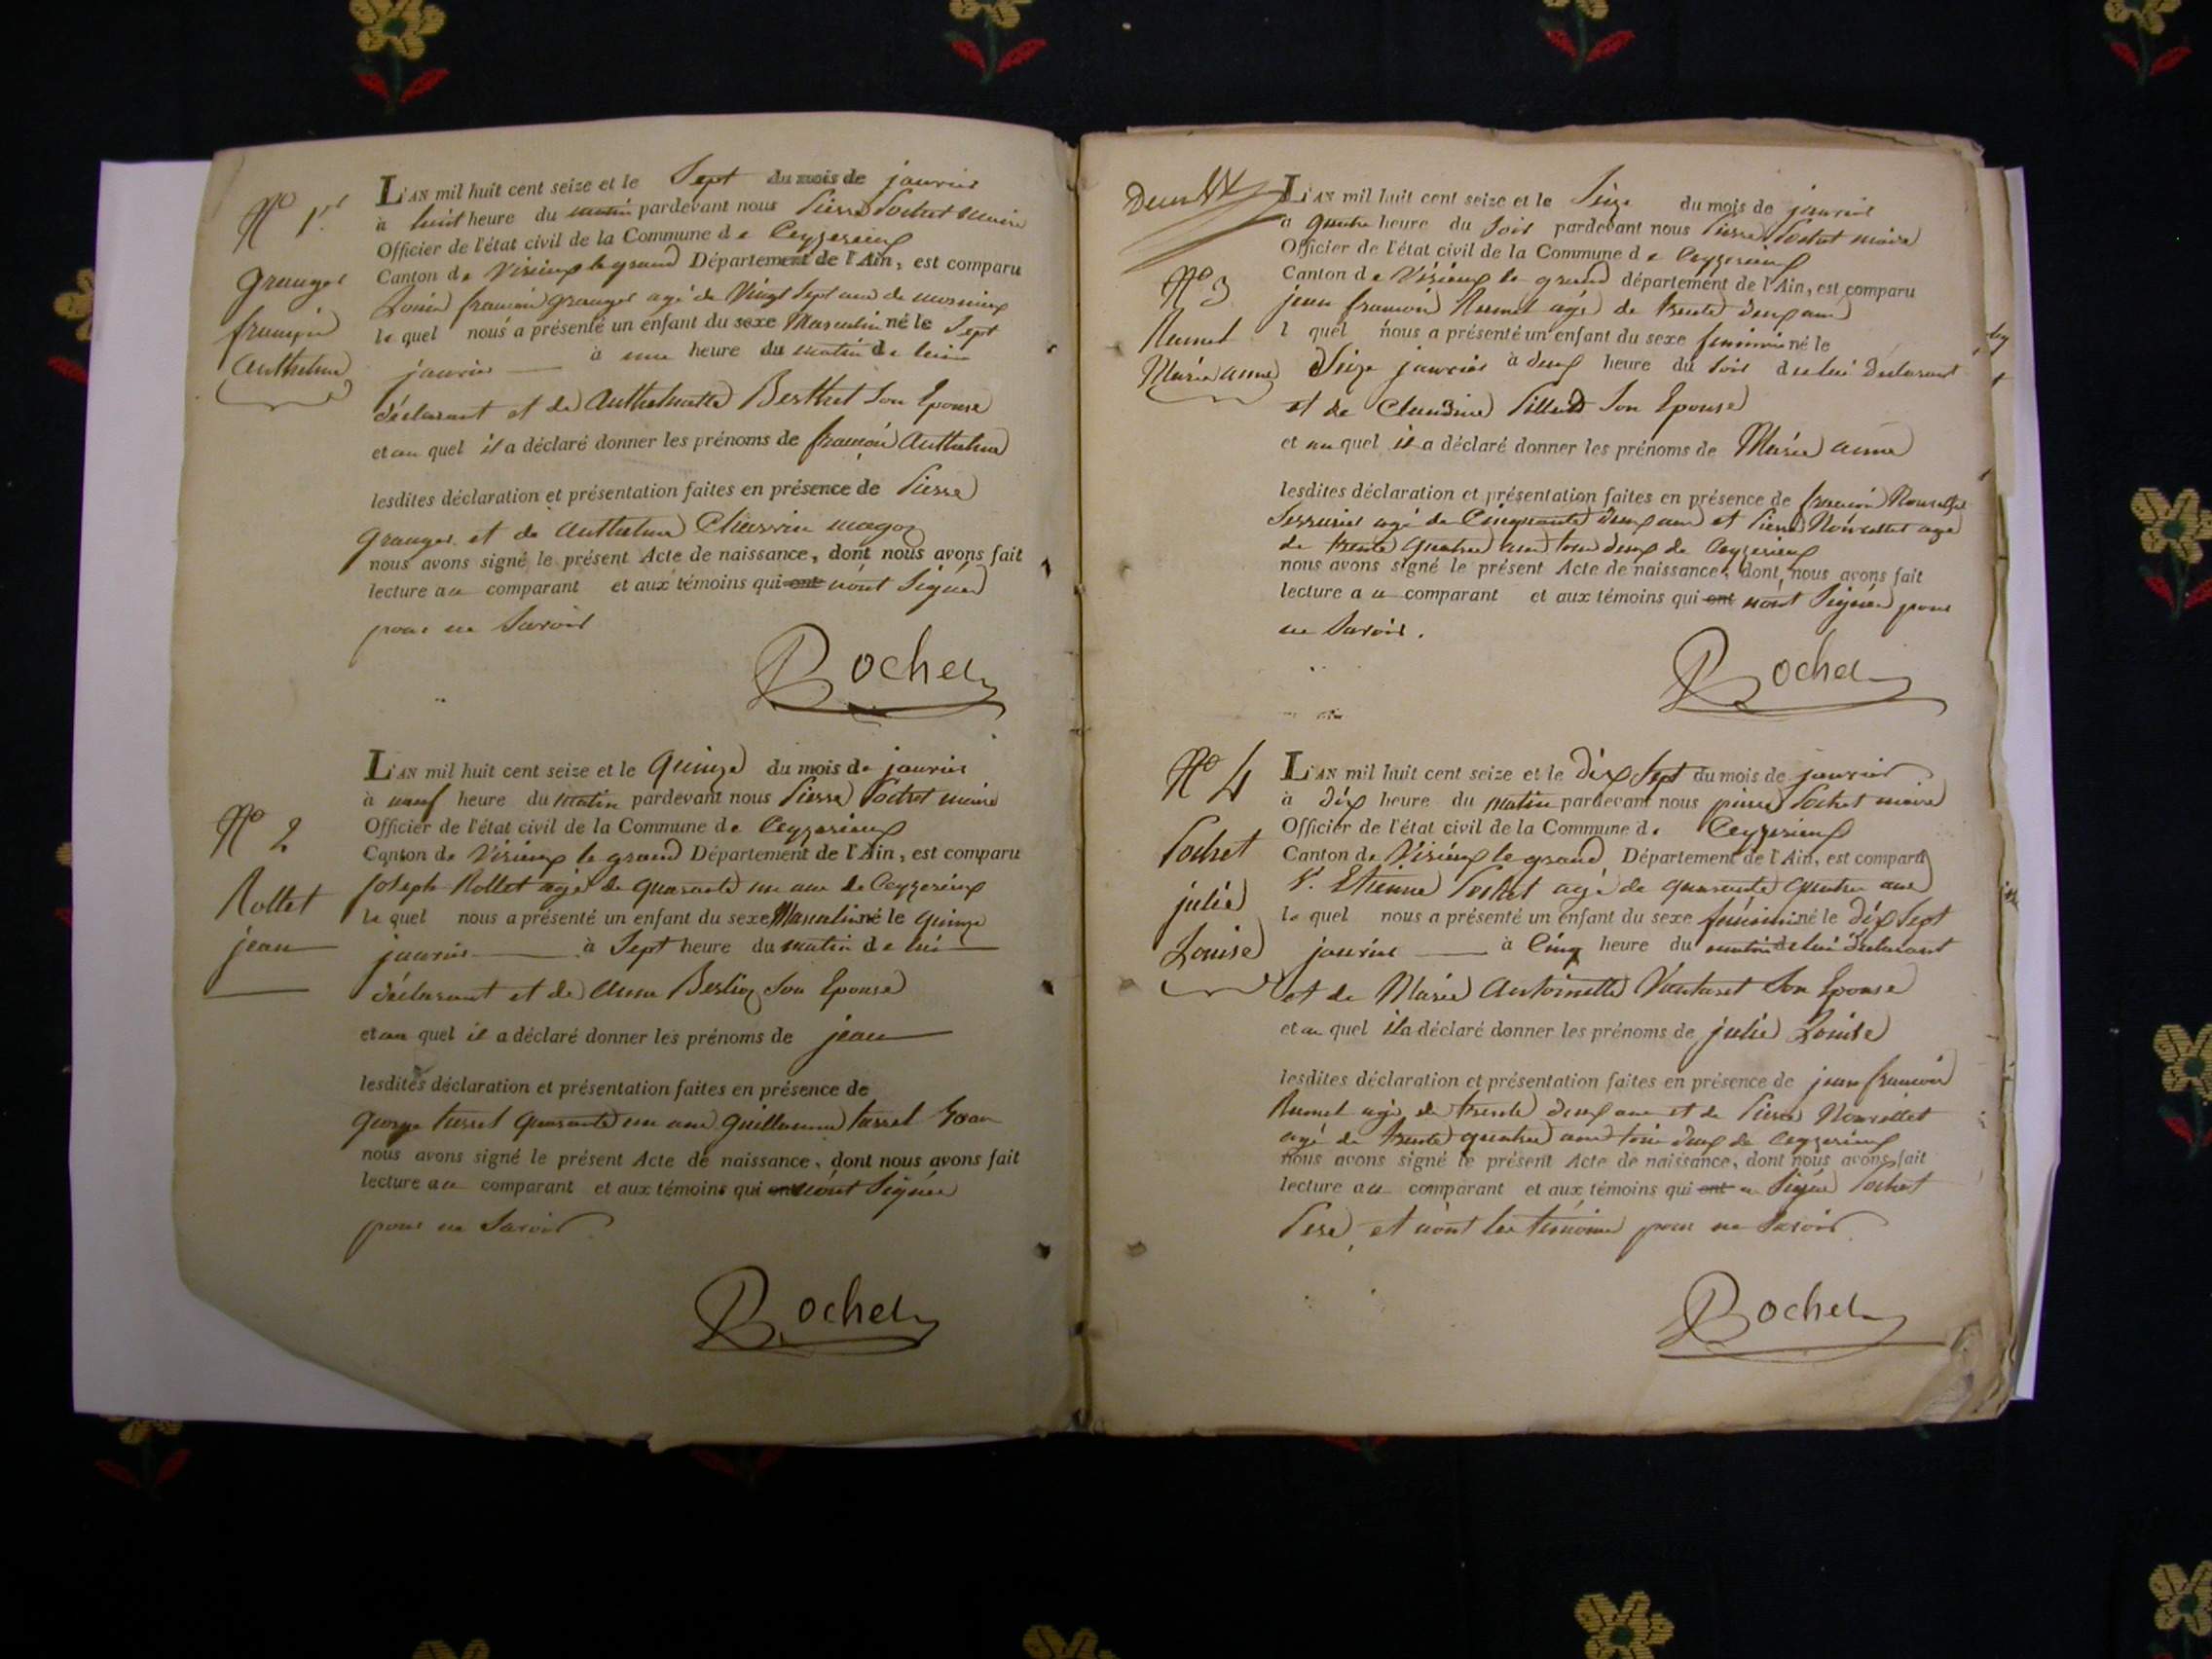 No 1er
Granger
françois
Anthelme
L'AN mil huit cent seize et le Sept du mois de janvier
à huit heure du matin pardevant nous Pierre Pochet maire
Officier de l'état civil de la Commune de Ceyzerieux
Canton de Virieux le grand Département de l'Ain, est comparu
françois granger agé de Vingt Sept ans de
le quel nous a présenté un enfant du sexe Masculin né le Sept
janvier à une heure du matin de lui
déclarant et de Anthelmette Berthet Son Epouse
et au quel il a déclaré donner les prénoms de françois Anthelme
lesdites déclaration et présentation faites en présence de Pierre
granger et de Anthelme
nous avons signé le présent Acte de naissance, dont nous avons fait
lecture au comparant et aux témoins qui ont n'ont Signer
pour ne Savoir
Pochet
No 2
Rollet
jean
L'AN mil huit cent seize et le Quinze du mois de janvier
à neuf heure du matin pardevant nous Pierre Pochet maire
Officier de l'état civil de la Commune de Ceyzerieux
Canton de Virieux le grand Département de l'Ain, est comparu
joseph Rollet agé de quarante un ans de Ceyzerieux
le quel nous a présenté un enfant du sexe Masculin né le quinze
janvier à Sept heure du matin de lui
déclarant et de Anne Berlioz Son Epouse
et au quel il a déclaré donner les prénoms de jean
lesdites déclaration et présentation faites en présence de
george tarret quarante un ans guillaume tarret
nous avons signé le présent Acte de naissance, dont nous avons fait
lecture au comparant et aux témoins qui ont n'ont Signer
pour ne Savoir
Pochet
No 3
Rumet
Marie anne
L'AN mil huit cent seize et le Seize du mois de janvier
à quatre heure du Soir pardevant nous Pierre Pochet maire
Officier de l'état civil de la Commune de Ceyzerieux
Canton de Virieux le grand département de l'Ain, est comparu
jean françois Rumet agé de trente deux ans
l quel nous a présenté un enfant du sexe feminin né le
Seize janvier à deux heure du Soir de lui declarant
et de Claudine Son Epouse
et au quel il a déclaré donner les prénoms de Marie anne
lesdites déclaration et présentation faites en présence de françois
Serrurier agé de Cinquante deux ans et Pierre Novellet agé
de trente quatre ans tous deux de Ceyzerieux
nous avons signé le présent Acte de naissance, dont nous avons fait
lecture au comparant et aux témoins qui ont n'ont Signer pour
ne Savoir.
Pochet
No 4
Pochet
julie
Louise
L'AN mil huit cent seize et le dix Sept du mois de janvier
à dix heure du matin pardevant nous pierre Pochet maire
Officier de l'état civil de la Commune de Ceyzerieux
Canton de Virieux le grand Département de l'Ain, est comparu
Etienne Pochet agé de quarante quatre ans
le quel nous a présenté un enfant du sexe féminin né le dix Sept
janvier à Cinq heure du matin de lui déclarant
et de Marie Antoinette Vautaret Son Epouse
et au quel il a déclaré donner les prénoms de julie Louise
lesdites déclaration et présentation faites en présence de jean françois
Rumet agé de trente deux ans et de Pierre Novellet
agé de trente quatre ans tous deux de Ceyzerieux
nous avons signé le présent Acte de naissance, dont nous avons fait
lecture au comparant et aux témoins qui ont a Signé Pochet
Pere, et n'ont les témoins pour ne Savoir
Pochet